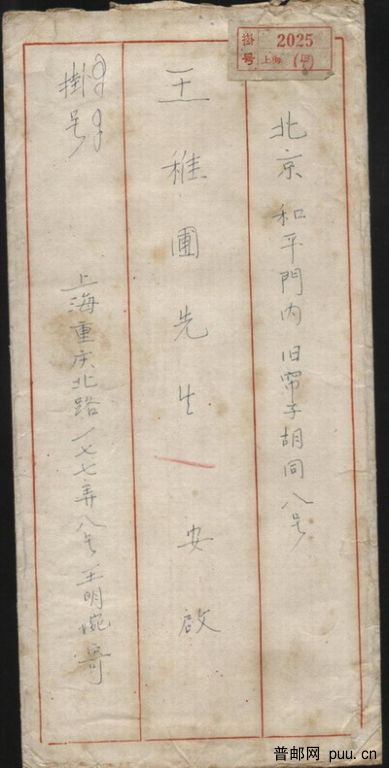 掛号 2025
上海 (
北京 和平門内 旧帘子胡同八号
王稚圃先生 安啟
掛号
上海重庆北路一七七弄八号 王明 寄
普邮网 puu.cn